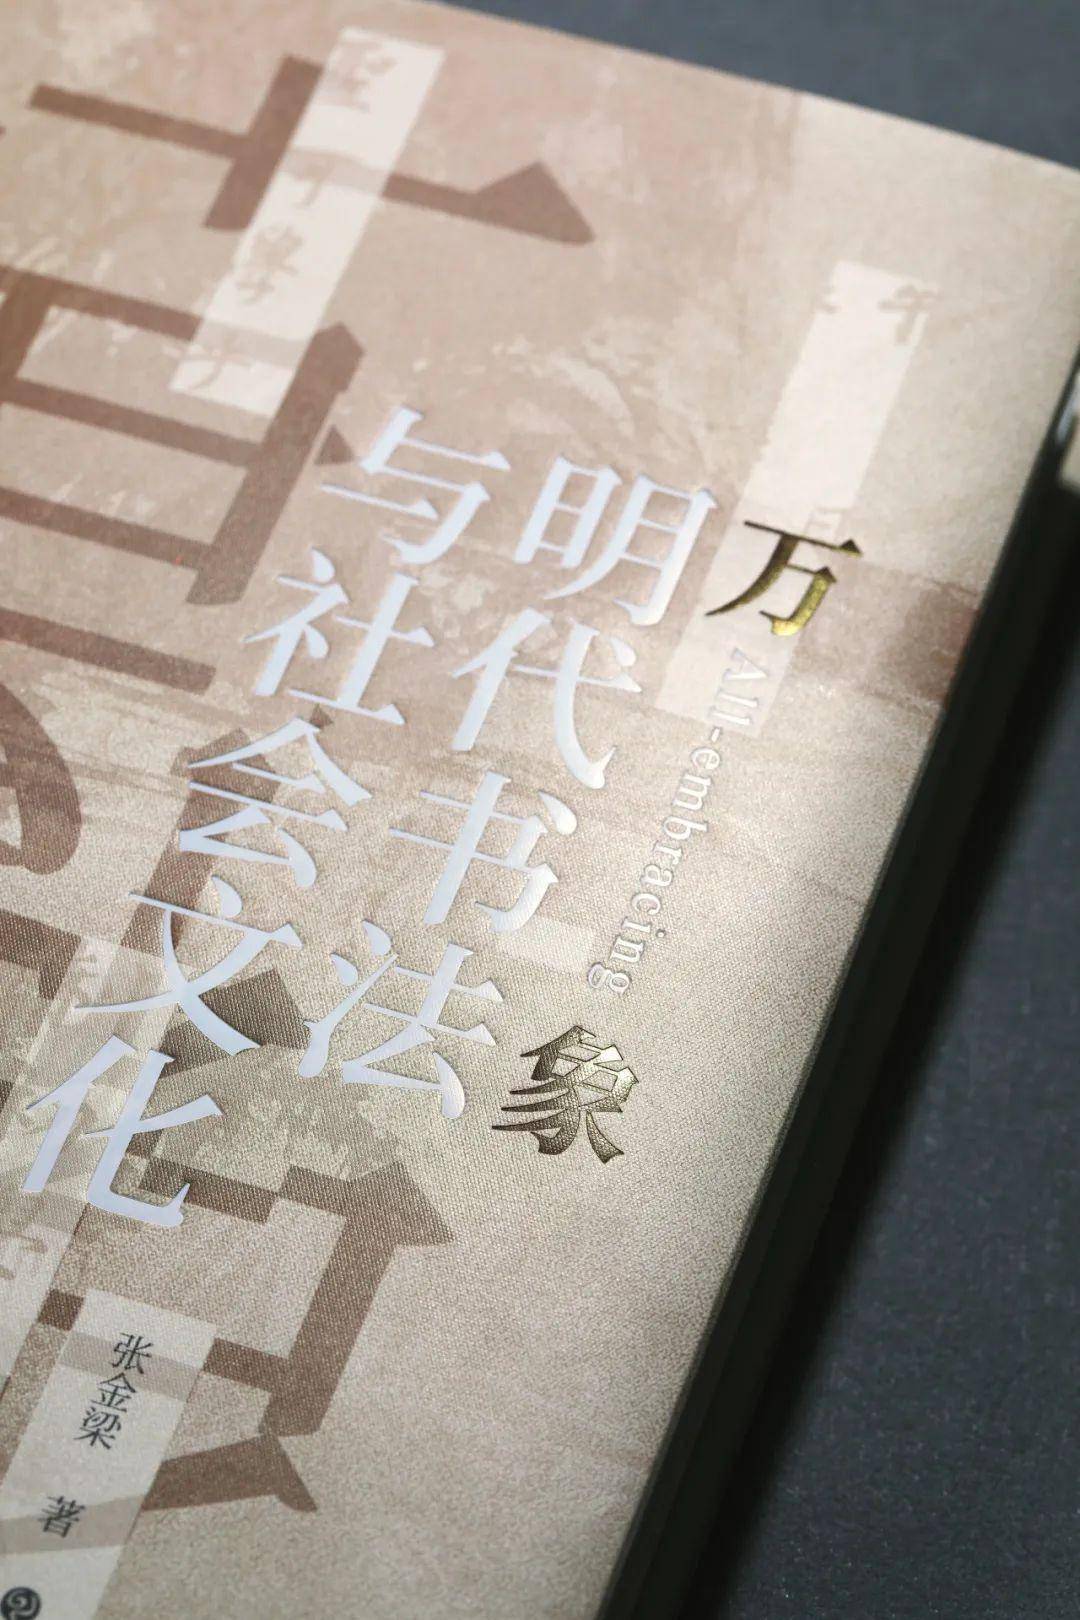 万象
All-embracing
明代书法
与社会文化
张金梁 著